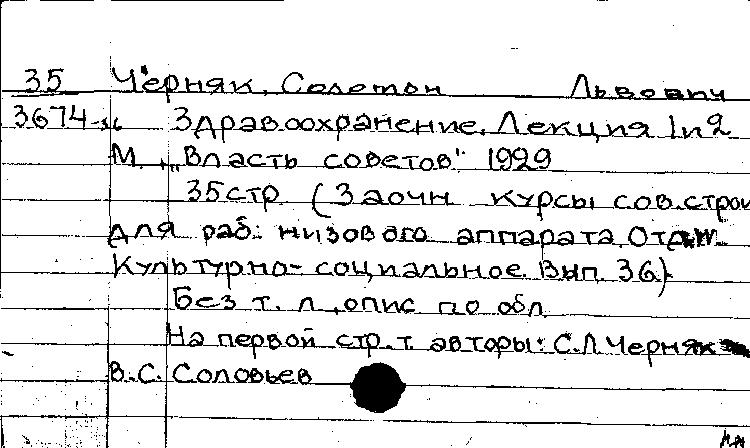 35 Черняк, Соломон Львович
3674-36 Здравоохранение. Лекция 1 и 2
М., "Власть советов" 1929
35 стр (Заочн курсы сов. строи
для раб. низового аппарата. Отд. III
Культурно-социальное. Вып. 36).
Без т. л., опис по обл
На первой стр. т. авторы: С.Л. Черняк
В.С. Соловьев